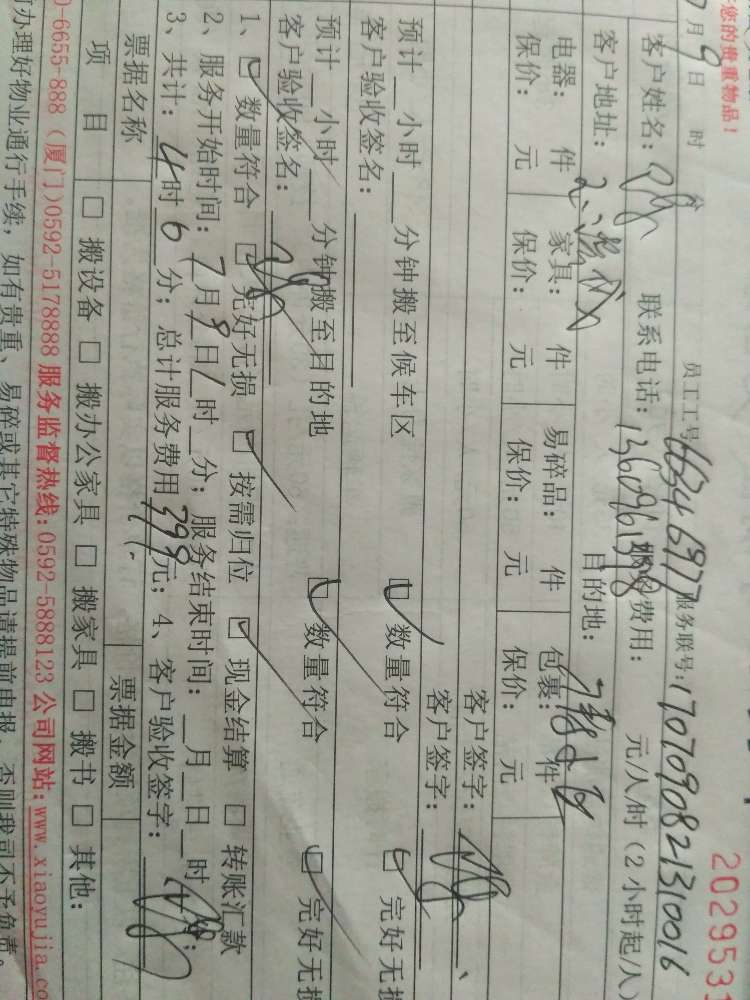 2029531
您的贵重物品！
员工工号 服务联号：1707090821310016
月9日 时 分
客户姓名： 联系电话： 服务费用： 元/人/时（2小时起/人）
客户地址： 目的地：
电器： 件 家具： 件 易碎品： 件 包裹： 件
保价： 元 保价： 元 保价： 元 保价： 元
客户签字：
客户签字：
预计__小时__分钟搬至候车区 数量符合 完好无损
客户验收签名：
预计__小时__分钟搬至目的地 数量符合 完好无损
客户验收签名：
1、 数量符合 完好无损 按需归位 现金结算 转账汇款
2、服务开始时间：7月9日1时__分；服务结束时间：__月__日__时
3、共计：4时6分；总计服务费用399元；4、客户验收签字：
票据名称 票据金额
项 目 □ 搬设备 □ 搬办公家具 □ 搬家具 □ 搬书 □ 其他：
0-6655-888（厦门）0592-5178888 服务监督热线：0592-5888123 公司网站：www.xiaoyujia.co
办理好物业通行手续，如有贵重、易碎或其它特殊物品请提前申报，否则我司不予负责。